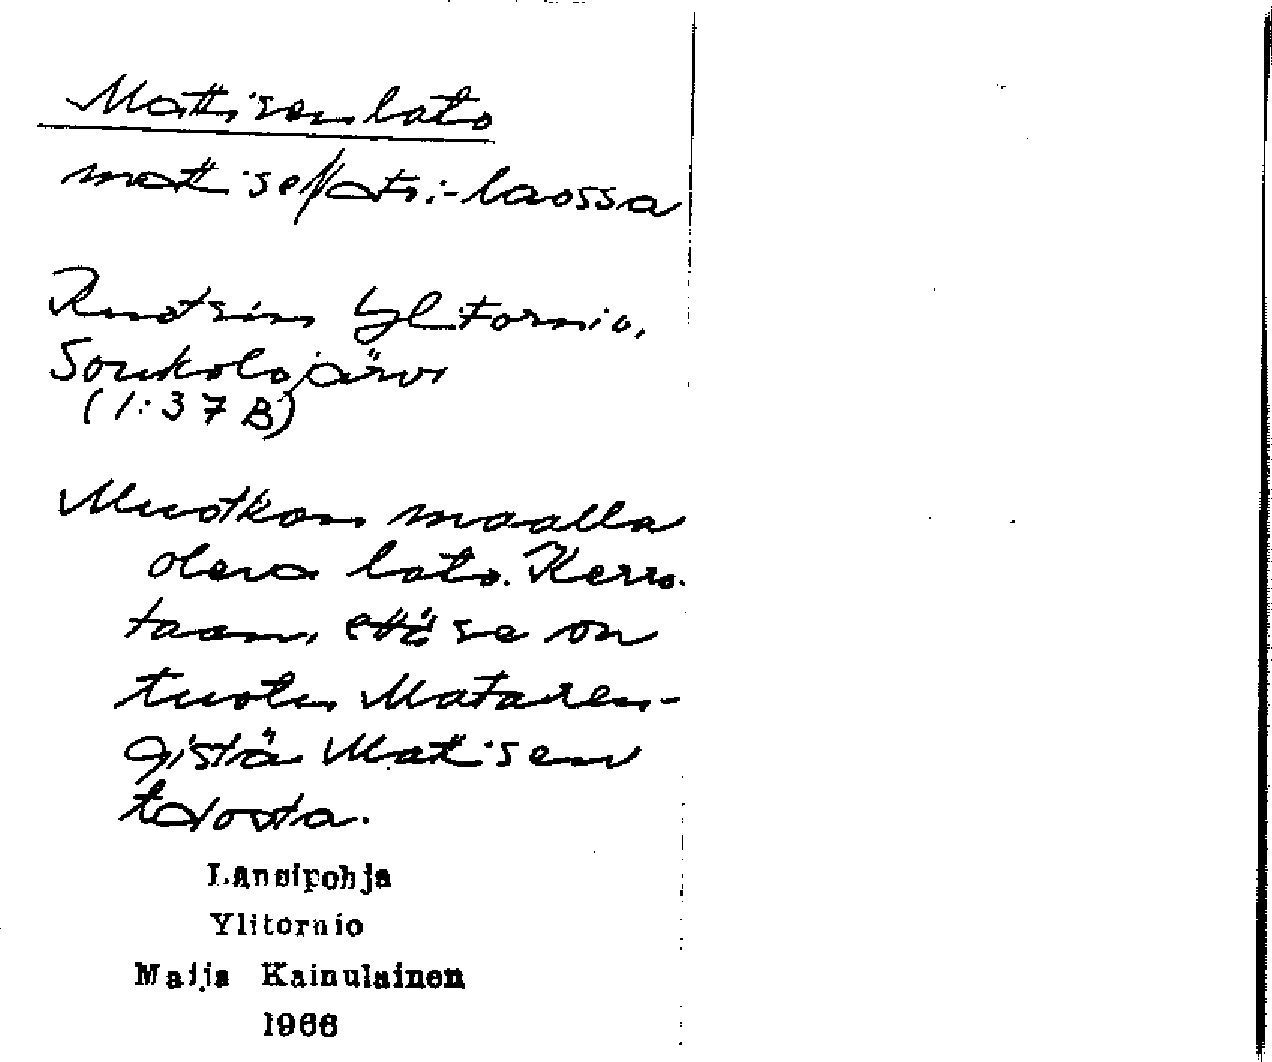 Mattisenlato
mattisellatri:-laossa
Ruotsin Ylitornio,
Soukolojärvi
(1:37 B)
Muotkan maalla
oleva lato. Kerro-
taan, että se on
tuotu Mataren-
gistä Mattisen
talosta.
Länsipohja
Ylitornio
Maija Kainulainen
1966